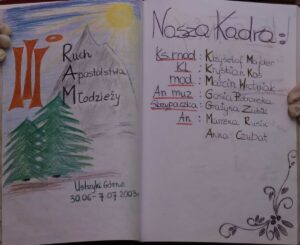 Ruch
Apostolstwa
Młodzieży
Ustrzyki Górne
30.06-7.07.2003r.
Nasza Kadra:
Ks. mod : Krzysztof Majder
KL : Krystian Kos
mod : Marcin
An muz : Gosia
Skrzypaczka : Grażyna
An : Marzena Rusin
Anna Czubat